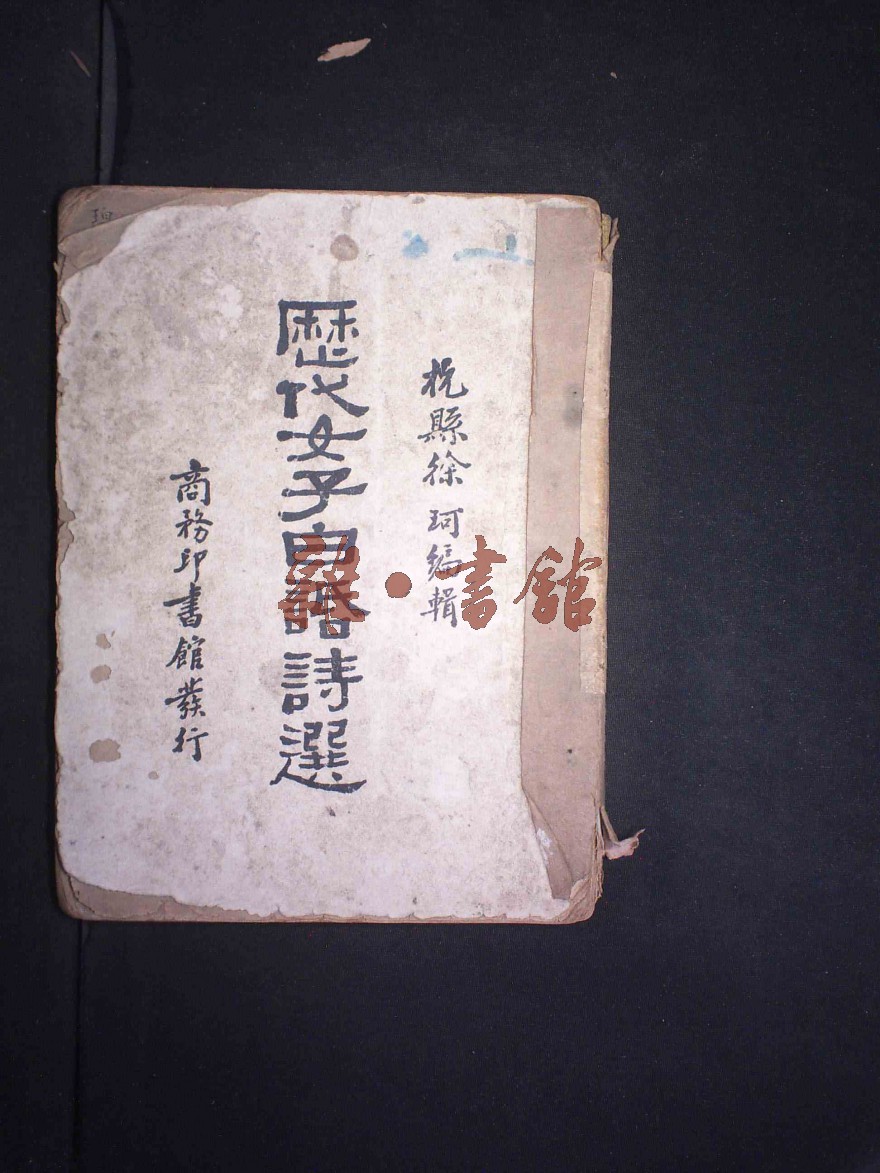 杭縣徐珂編輯
歷代女子白話詩選
商務印書館發行
書館